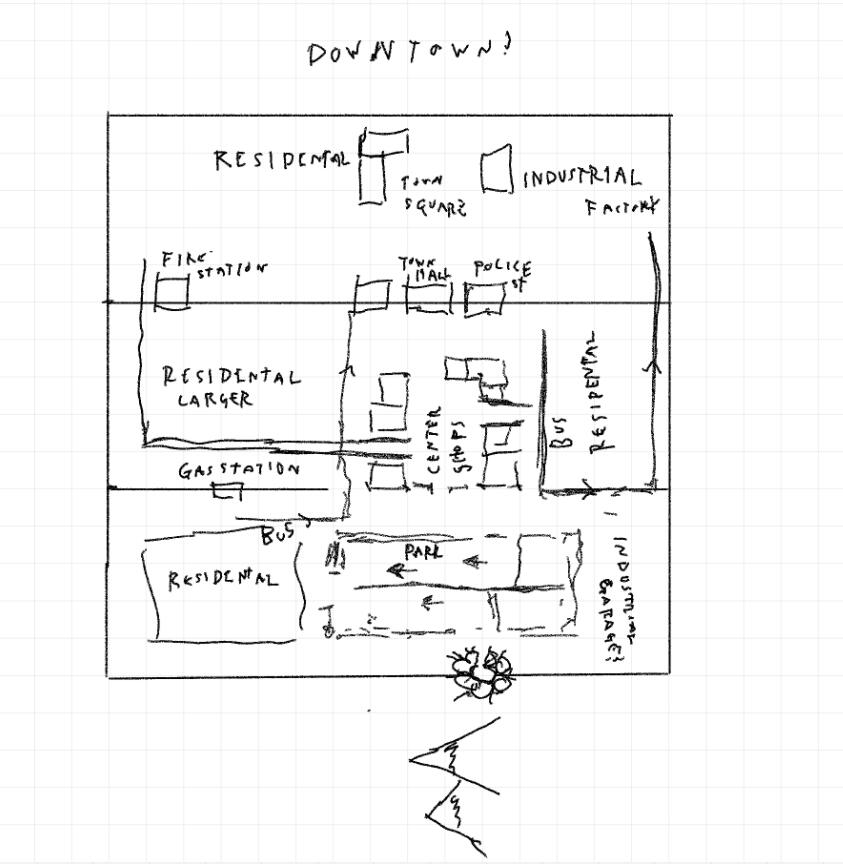 DOWNTOWN!
RESIDENTAL
TOWN
SQUARE
INDUSTRIAL
FACTORY
FIRE
STATION
TOWN
HALL
POLICE
ST
RESIDENTAL
LARGER
CENTER
SHOPS
BUS
RESIDENTAL
GAS STATION
BUS
PARK
RESIDENTAL
INDUSTRIAL
GARAGE?